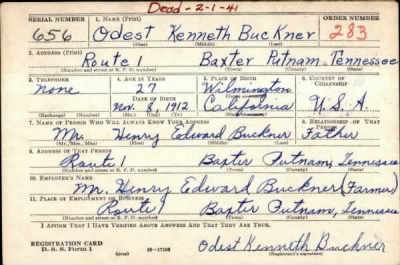 Dead - 2-1-41
SERIAL NUMBER 1. NAME (Print) ORDER NUMBER
656 Odest Kenneth Buckner 283
(First) (Middle) (Last)
2. ADDRESS (Print)
Route 1 Baxter Putnam Tennessee
(Number and street or R. F. D. number) (Town) (County) (State)
3. TELEPHONE 4. AGE IN YEARS 5. PLACE OF BIRTH 6. COUNTRY OF CITIZENSHIP
none 27 Wilmington U.S.A.
DATE OF BIRTH
Nov. 8, 1912 California
7. NAME OF PERSON WHO WILL ALWAYS KNOW YOUR ADDRESS 8. RELATIONSHIP OF THAT PERSON
Mr. Henry Edward Buckner Father
(Mr., Mrs., Miss) (First) (Middle) (Last)
9. ADDRESS OF THAT PERSON
Route 1 Baxter Putnam, Tennessee
(Number and street or R. F. D. number) (Town) (County) (State)
10. EMPLOYER'S NAME
Mr. Henry Edward Buckner (Farmer)
11. PLACE OF EMPLOYMENT OR BUSINESS
Route 1 Baxter Putnam, Tennessee
(Number and street or R. F. D. number) (Town) (County) (State)
I AFFIRM THAT I HAVE VERIFIED ABOVE ANSWERS AND THAT THEY ARE TRUE.
REGISTRATION CARD
D. S. S. Form 1 (over) Odest Kenneth Buckner
(Registrant's signature)